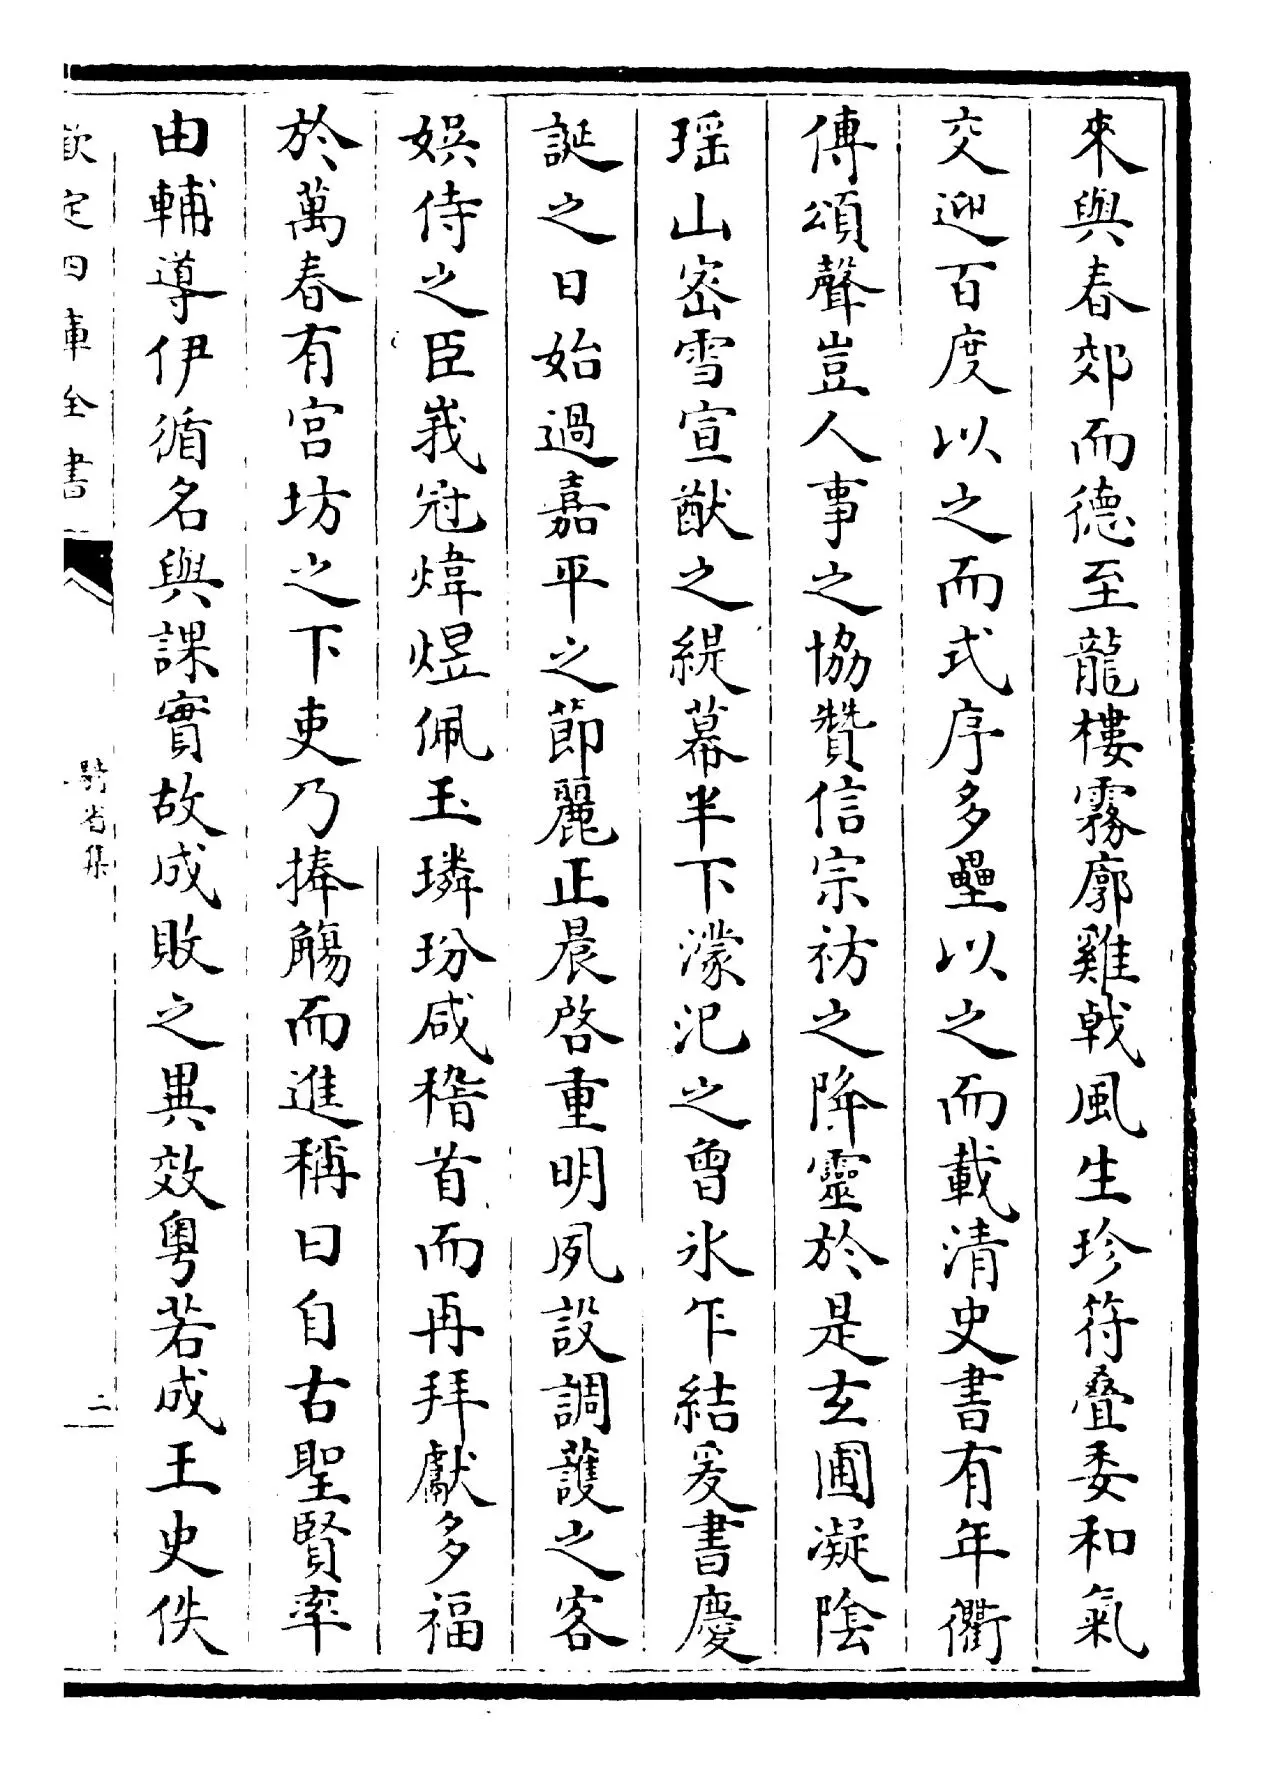 來與春郊而德至龍樓霧廓雞戟風生珍符叠委和氣
交迎百度以之而式序多壘以之而載清史書有年衢
傳頌聲豈人事之協贊信宗祊之降靈於是玄圃凝陰
瑶山密雪宣猷之緹幕半下濛汜之曾氷乍結爰書慶
誕之日始過嘉平之節麗正晨啓重明夙設調護之客
娯侍之臣峩冠煒煜佩玉璘玢咸稽首而再拜獻多福
於萬春有宫坊之下吏乃捧觴而進稱曰自古聖賢率
由輔導伊循名與課實故成敗之異效粤若成王史佚
欽定四庫全書
騎省集
二